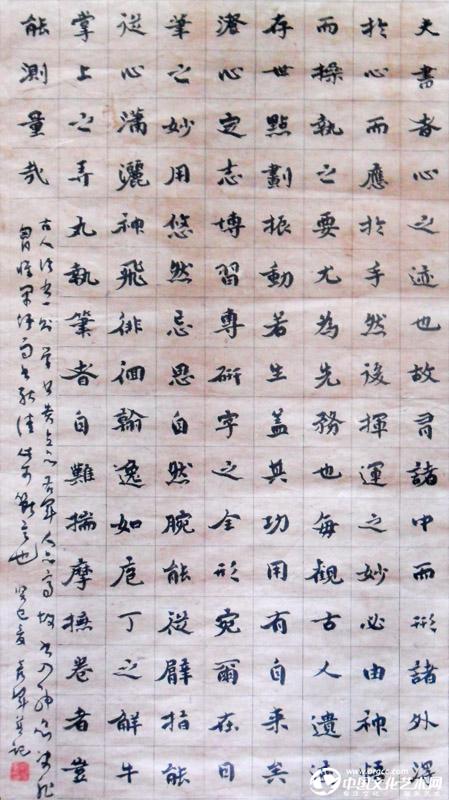 夫書者心之迹也故有諸中而形諸外得
於心而應於手然後揮運之妙必由神悟
而操執之要尤為先務也每觀古人遺
存世點劃振動若生蓋其功用有自來矣
澄心定志博習專研字之全形宛爾在目
筆之妙用悠然忌思自然腕能從臂指能
從心瀟灑神飛徘徊翰逸如庖丁之解牛
掌上之弄丸執筆者自難揣摩撫卷者豈
能測量哉
古人
也 癸巳夏
中国文化艺术网